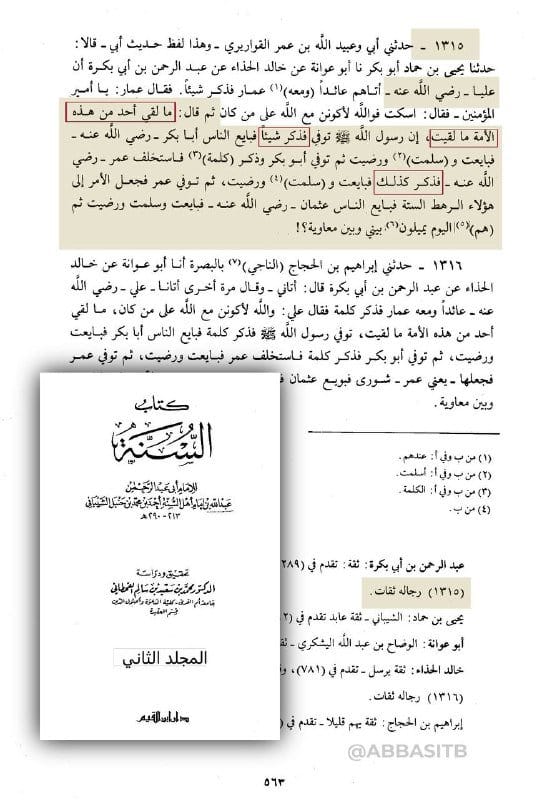 ١٣١٥ ـ حدثني أبي وعبيد الله بن عمر القواريري ـ وهذا لفظ حديث أبي ـ قالا:
حدثنا يحيى بن حماد أبو بكر نا أبو عوانة عن خالد الحذاء عن عبد الرحمن بن أبي بكرة أن
علياً ـ رضي الله عنه ـ أتاهم عائداً (ومعه)(١) عمار فذكر شيئاً. فقال عمار: يا أمير
المؤمنين ـ فقال: اسكت فوالله لأكونن مع الله على من كان ثم قال: ما لقي أحد من هذه
الأمة ما لقيت، إن رسول الله ﷺ توفي فذكر شيئاً فبايع الناس أبا بكر ـ رضي الله عنه ـ
فبايعت و (سلمت)(٢) ورضيت ثم توفي أبو بكر وذكر (كلمة)(٣) فاستخلف عمر ـ رضي
الله عنه ـ فذكر كذلك فبايعت و (سلمت)(٤) ورضيت، ثم توفي عمر فجعل الأمر إلى
هؤلاء الرهط الستة فبايع الناس عثمان ـ رضي الله عنه ـ فبايعت وسلمت ورضيت ثم
(هم)(٥) اليوم يميلون(٦) بيني وبين معاوية؟!
١٣١٦ ـ حدثني إبراهيم بن الحجاج (الناجي)(٧) بالبصرة أنا أبو عوانة عن خالد
الحذاء عن عبد الرحمن بن أبي بكرة قال: أتاني ـ وقال مرة أخرى أتانا ـ علي ـ رضي الله
عنه ـ عائداً ومعه عمار فذكر كلمة فقال علي: والله لأكونن مع الله على من كان، ما لقي
أحد من هذه الأمة ما لقيت، توفي رسول الله ﷺ فذكر كلمة فبايع الناس أبا بكر فبايعت
ورضيت، ثم توفي أبو بكر فذكر كلمة فاستخلف عمر فبايعت ورضيت، ثم توفي عمر
فجعلها ـ يعني عمر ـ شورى فبويع عثمان
وبين معاوية.
كتاب
السنة
للإمام أبي عبد الرحمن
عبد الله بن إمام أهل السنة أحمد بن محمد بن حنبل الشيباني
٢١٣-٢٩٠هـ
تحقيق ودراسة
الدكتور محمد بن سعيد بن سالم القحطاني
جامعة أم القرى - كلية الدعوة وأصول الدين
قسم العقيدة
المجلد الثاني
دار ابن القيم
(١) من ب وفي أ: عندهم.
(٢) من ب وفي أ: أسلمت.
(٣) من ب وفي أ: الكلمة.
(٤) من ب.
عبد الرحمن بن أبي بكرة: ثقة: تقدم في (٢٨٩
(١٣١٥) رجاله ثقات.
يحيى بن حماد: الشيباني ـ ثقة عابد تقدم في
أبو عوانة: الوضاح بن عبد الله اليشكري ـ ثقة
خالد الحذاء: ثقة يرسل ـ تقدم في (٧٨١)،
(١٣١٦) رجاله ثقات.
إبراهيم بن الحجاج: ثقة يهم قليلا ـ تقدم في
@ABBASITB
٥٦٣